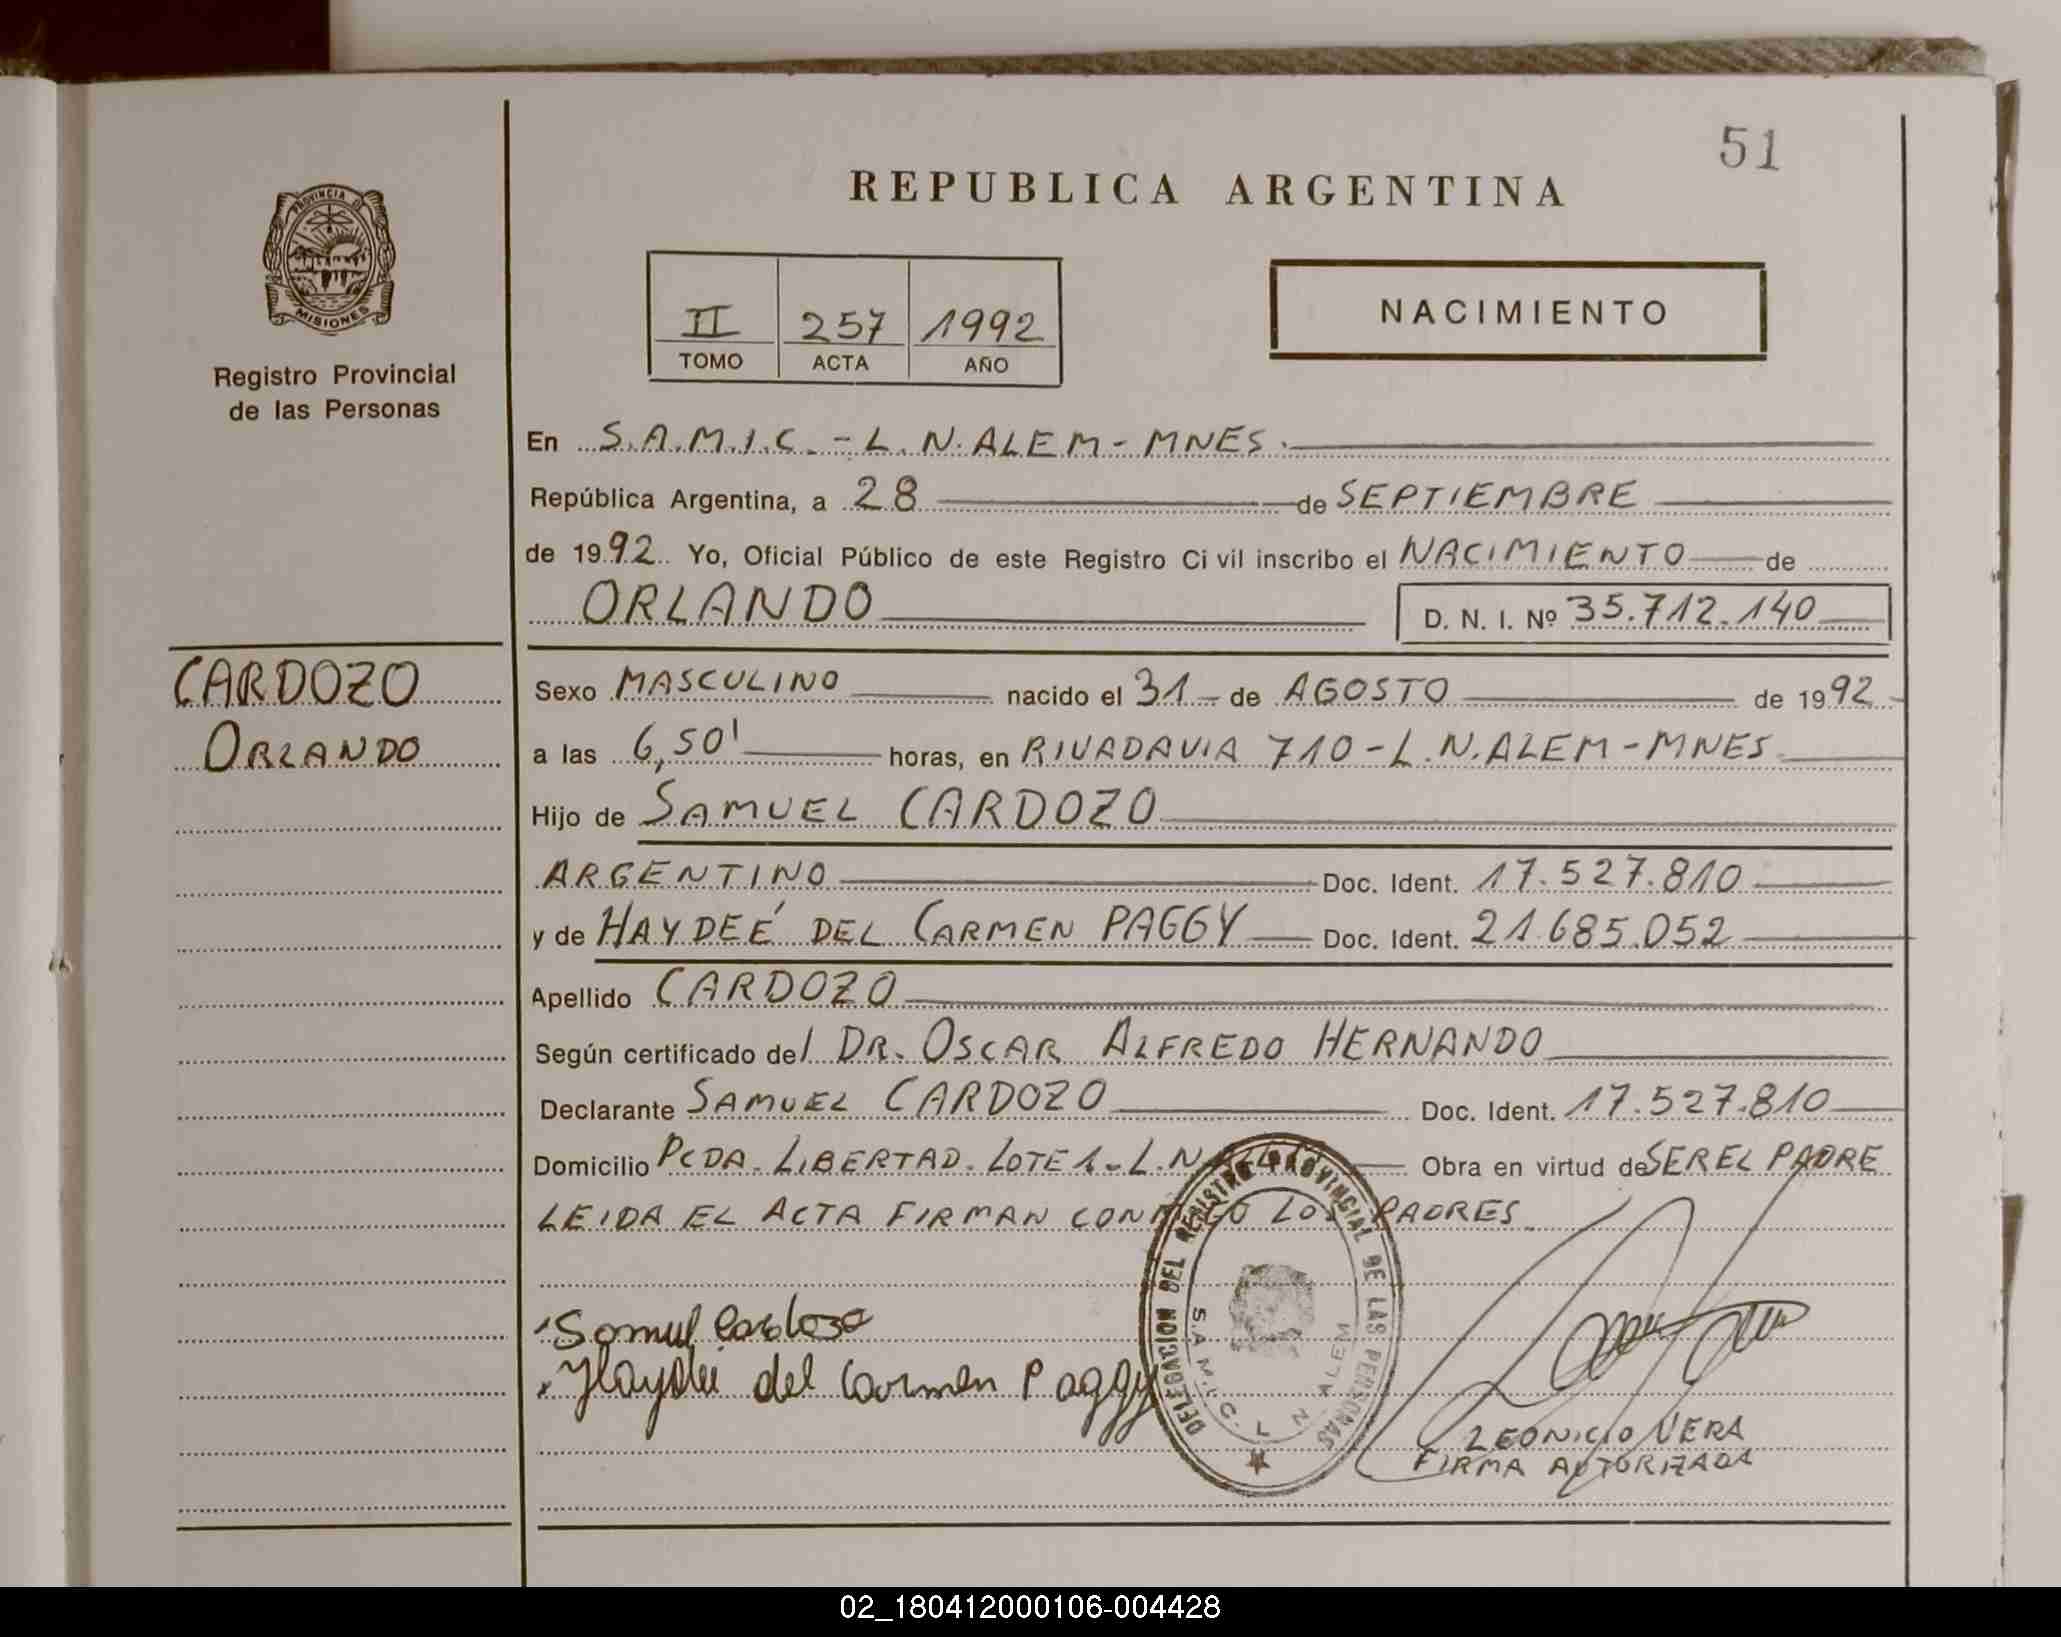 51
REPUBLICA ARGENTINA
PROVINCIA DE
MISIONES
Registro Provincial
de las Personas
II 257 1992
TOMO ACTA AÑO
NACIMIENTO
En S.A.M.I.C. - L. N. ALEM - MNES.
República Argentina, a 28 de SEPTIEMBRE
de 1992. Yo, Oficial Público de este Registro Ci vil inscribo el NACIMIENTO de
ORLANDO D. N. I. Nº 35.712.140
CARDOZO
ORLANDO
Sexo MASCULINO nacido el 31 de AGOSTO de 1992
a las 6,50' horas, en RIVADAVIA 710 - L.N. ALEM - MNES
Hijo de SAMUEL CARDOZO
ARGENTINO Doc. Ident. 17.527.810
y de HAYDEÉ DEL CARMEN PAGGY Doc. Ident. 21.685.052
Apellido CARDOZO
Según certificado del DR. OSCAR ALFREDO HERNANDO
Declarante SAMUEL CARDOZO Doc. Ident. 17.527.810
Domicilio PCDA. LIBERTAD. LOTE 1 - L.N. Obra en virtud de SER EL PADRE
LEIDA EL ACTA FIRMAN CONMIGO LOS PADRES
Samuel Cardozo
Haydeé del Carmen Paggy
DELEGACION DEL REGISTRO PROVINCIAL DE LAS PERSONAS
S.A.M.I.C. L. N. ALEM
LEONICIO VERA
FIRMA AUTORIZADA
02_180412000106-004428